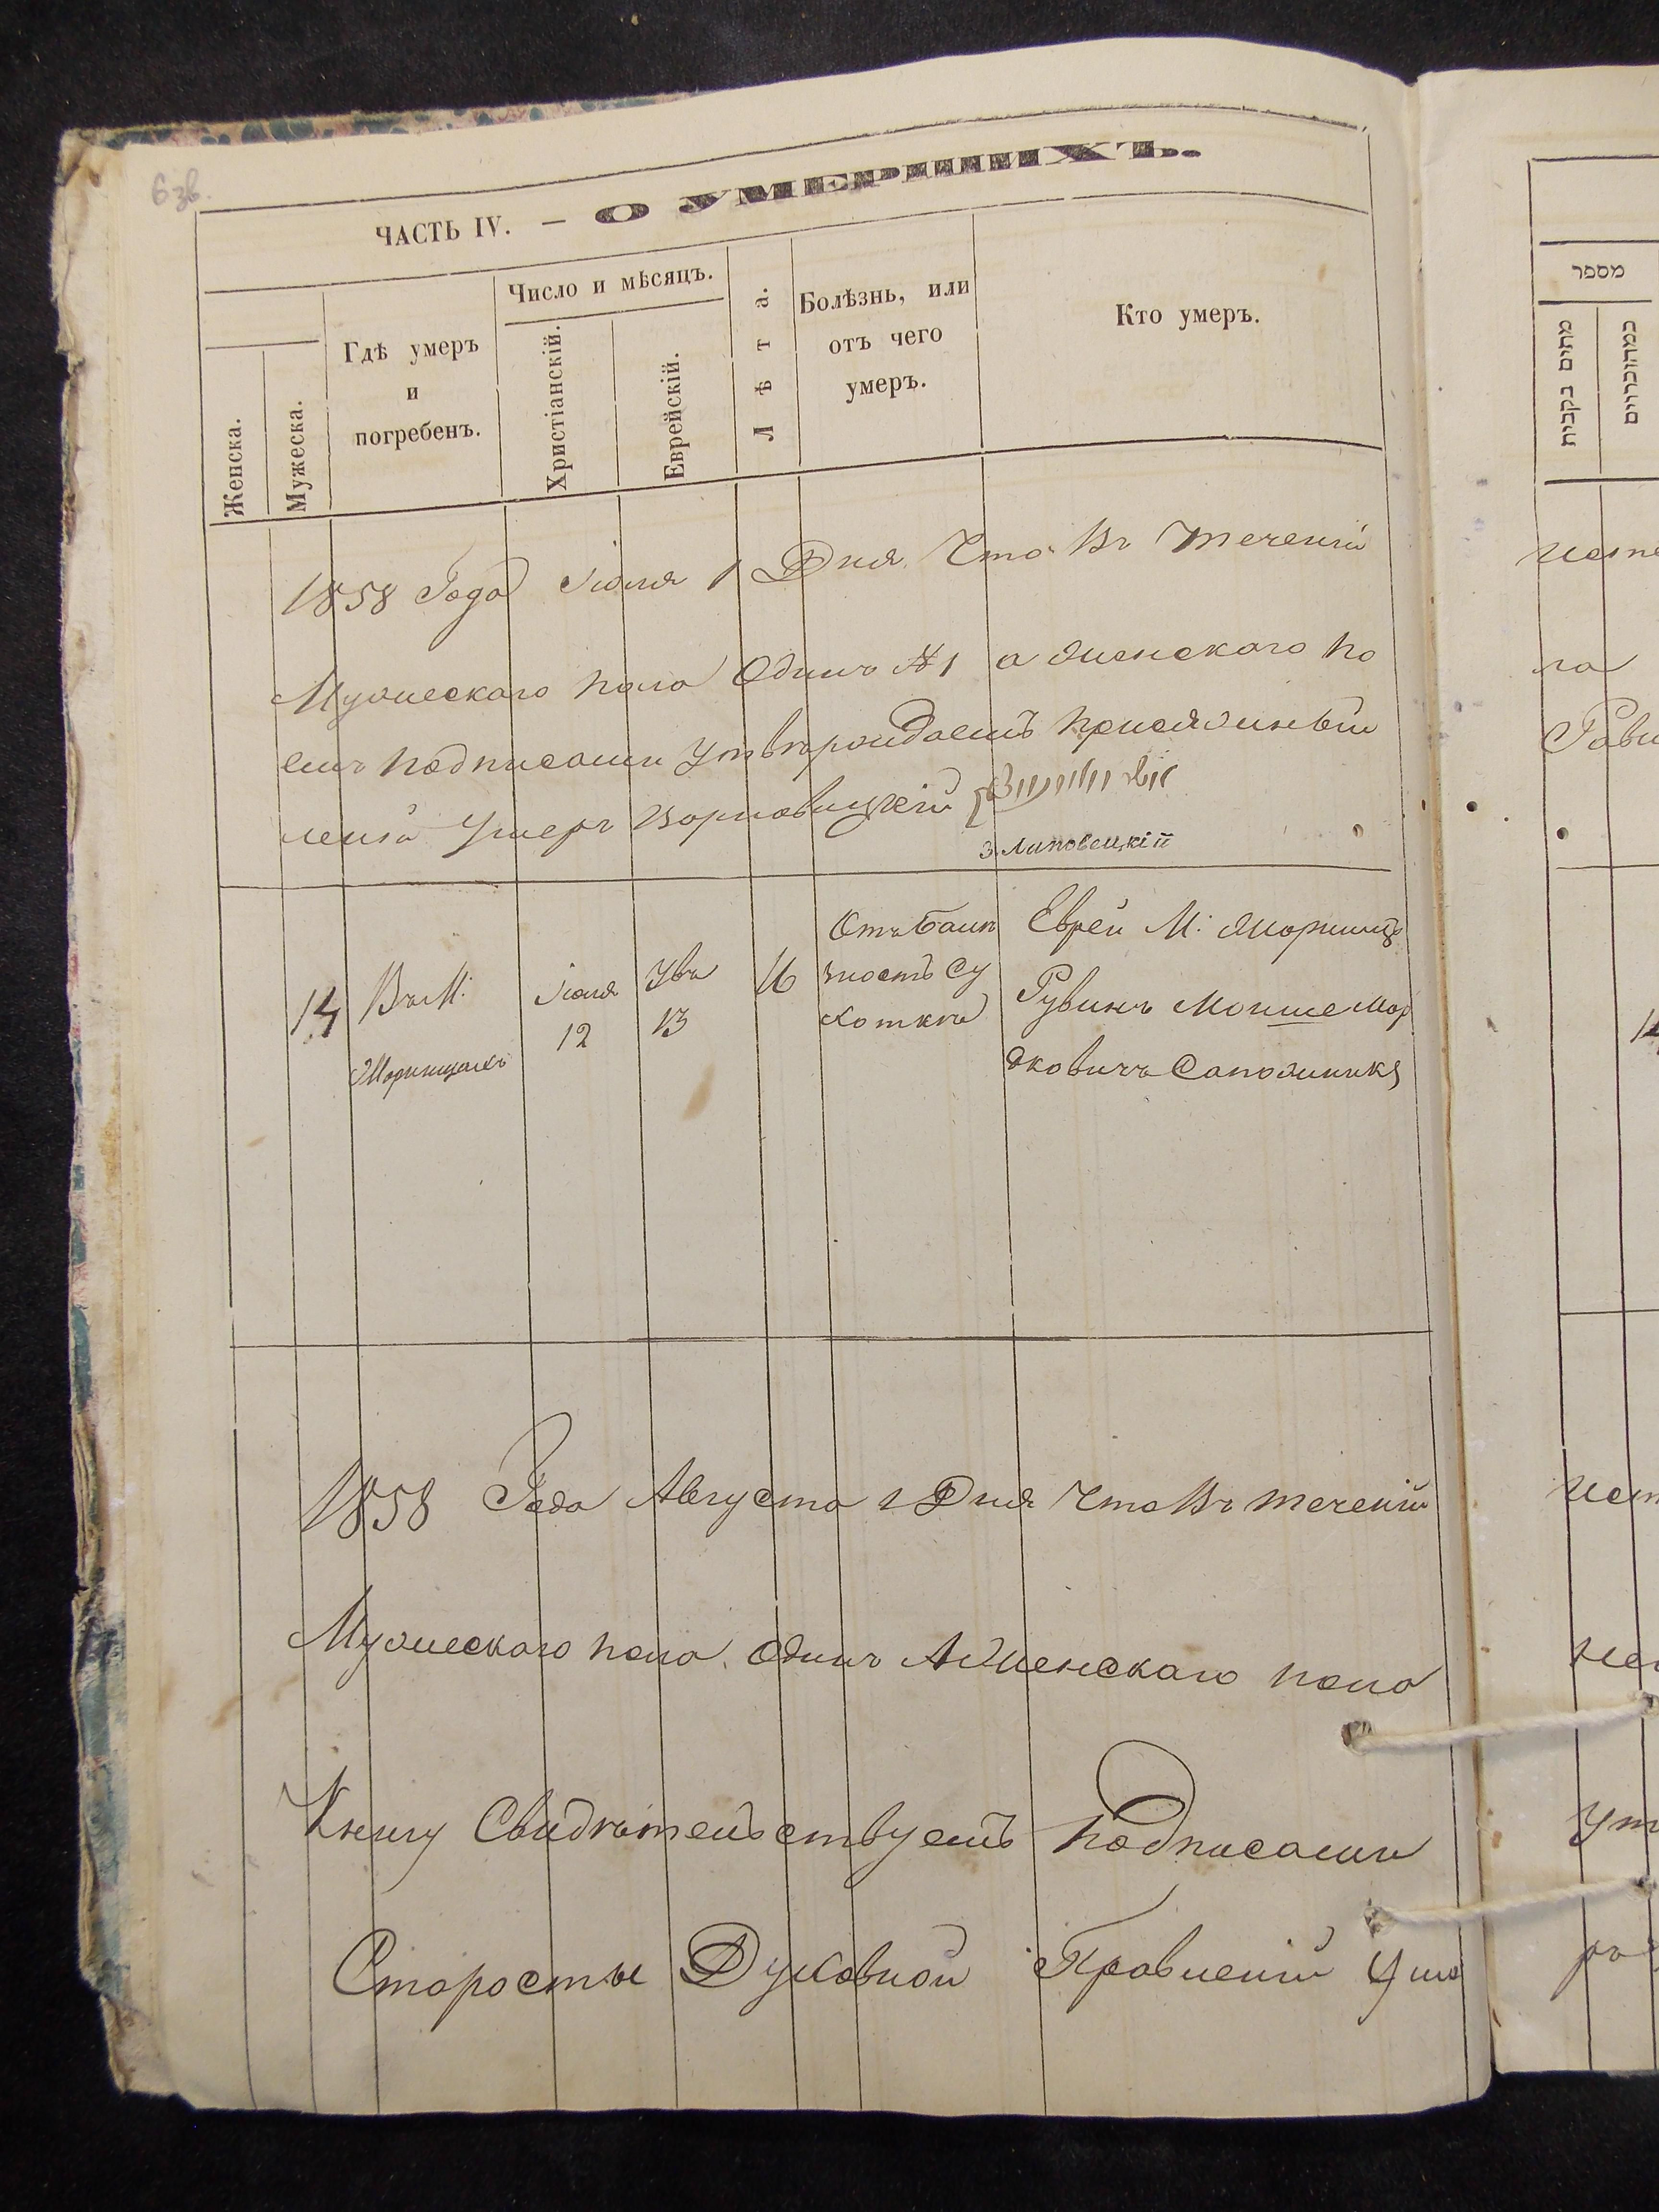 6 зв.
ЧАСТЬ IV. — О УМЕРШИХЪ.
Женска.
Мужеска.
Гдѣ умеръ
и
погребенъ.
Число и мѣсяцъ.
Христіанскій.
Еврейскій.
Лѣта.
Болѣзнь, или
отъ чего
умеръ.
Кто умеръ.
1858 Года Іюля 1 Дня Что Въ течении
Мужескаго пола Одинъ № 1 а женскаго по
емъ подписами утвѣрждаемъ присяжный
Умеръ
З. Липовецкій
14
ВъМ:
Жорнищахъ
Іюля
12
Ува
13
16
Отъ болѣ
зностъ Су
хоткѣ
Еврей М: Жорнищъ
Рувинъ Мошие Мор
дковичъ Сапожникъ
1858 Года Августа 1 Дня Что Въ течении
Мужескаго пола одинъ А Женскаго пола
Книгу Свидѣтельствуемъ подписами
Старосты Духовной Правлении
מספר
מתים בקבית
כמהזכרים
ла